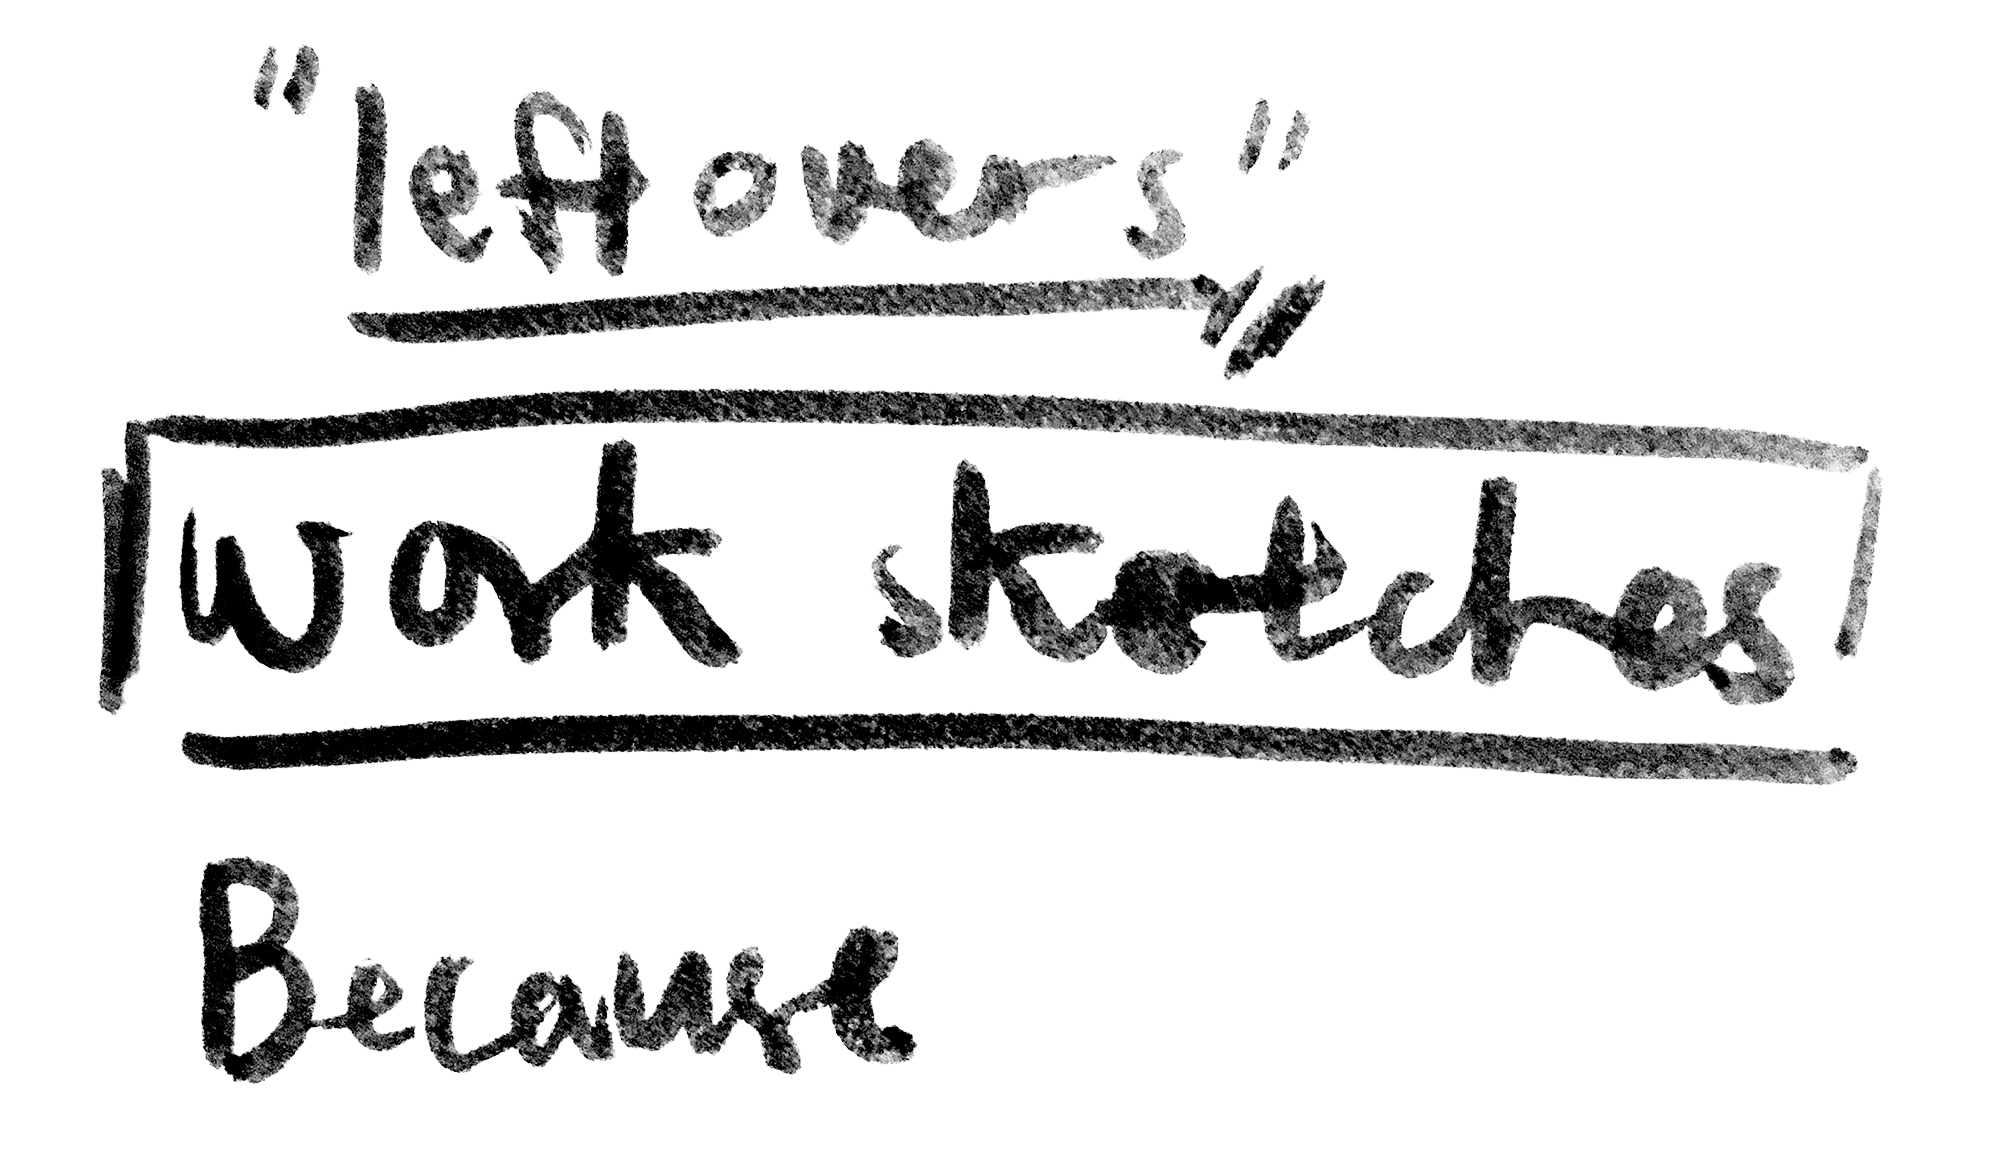 "leftovers"
work sketches
Because